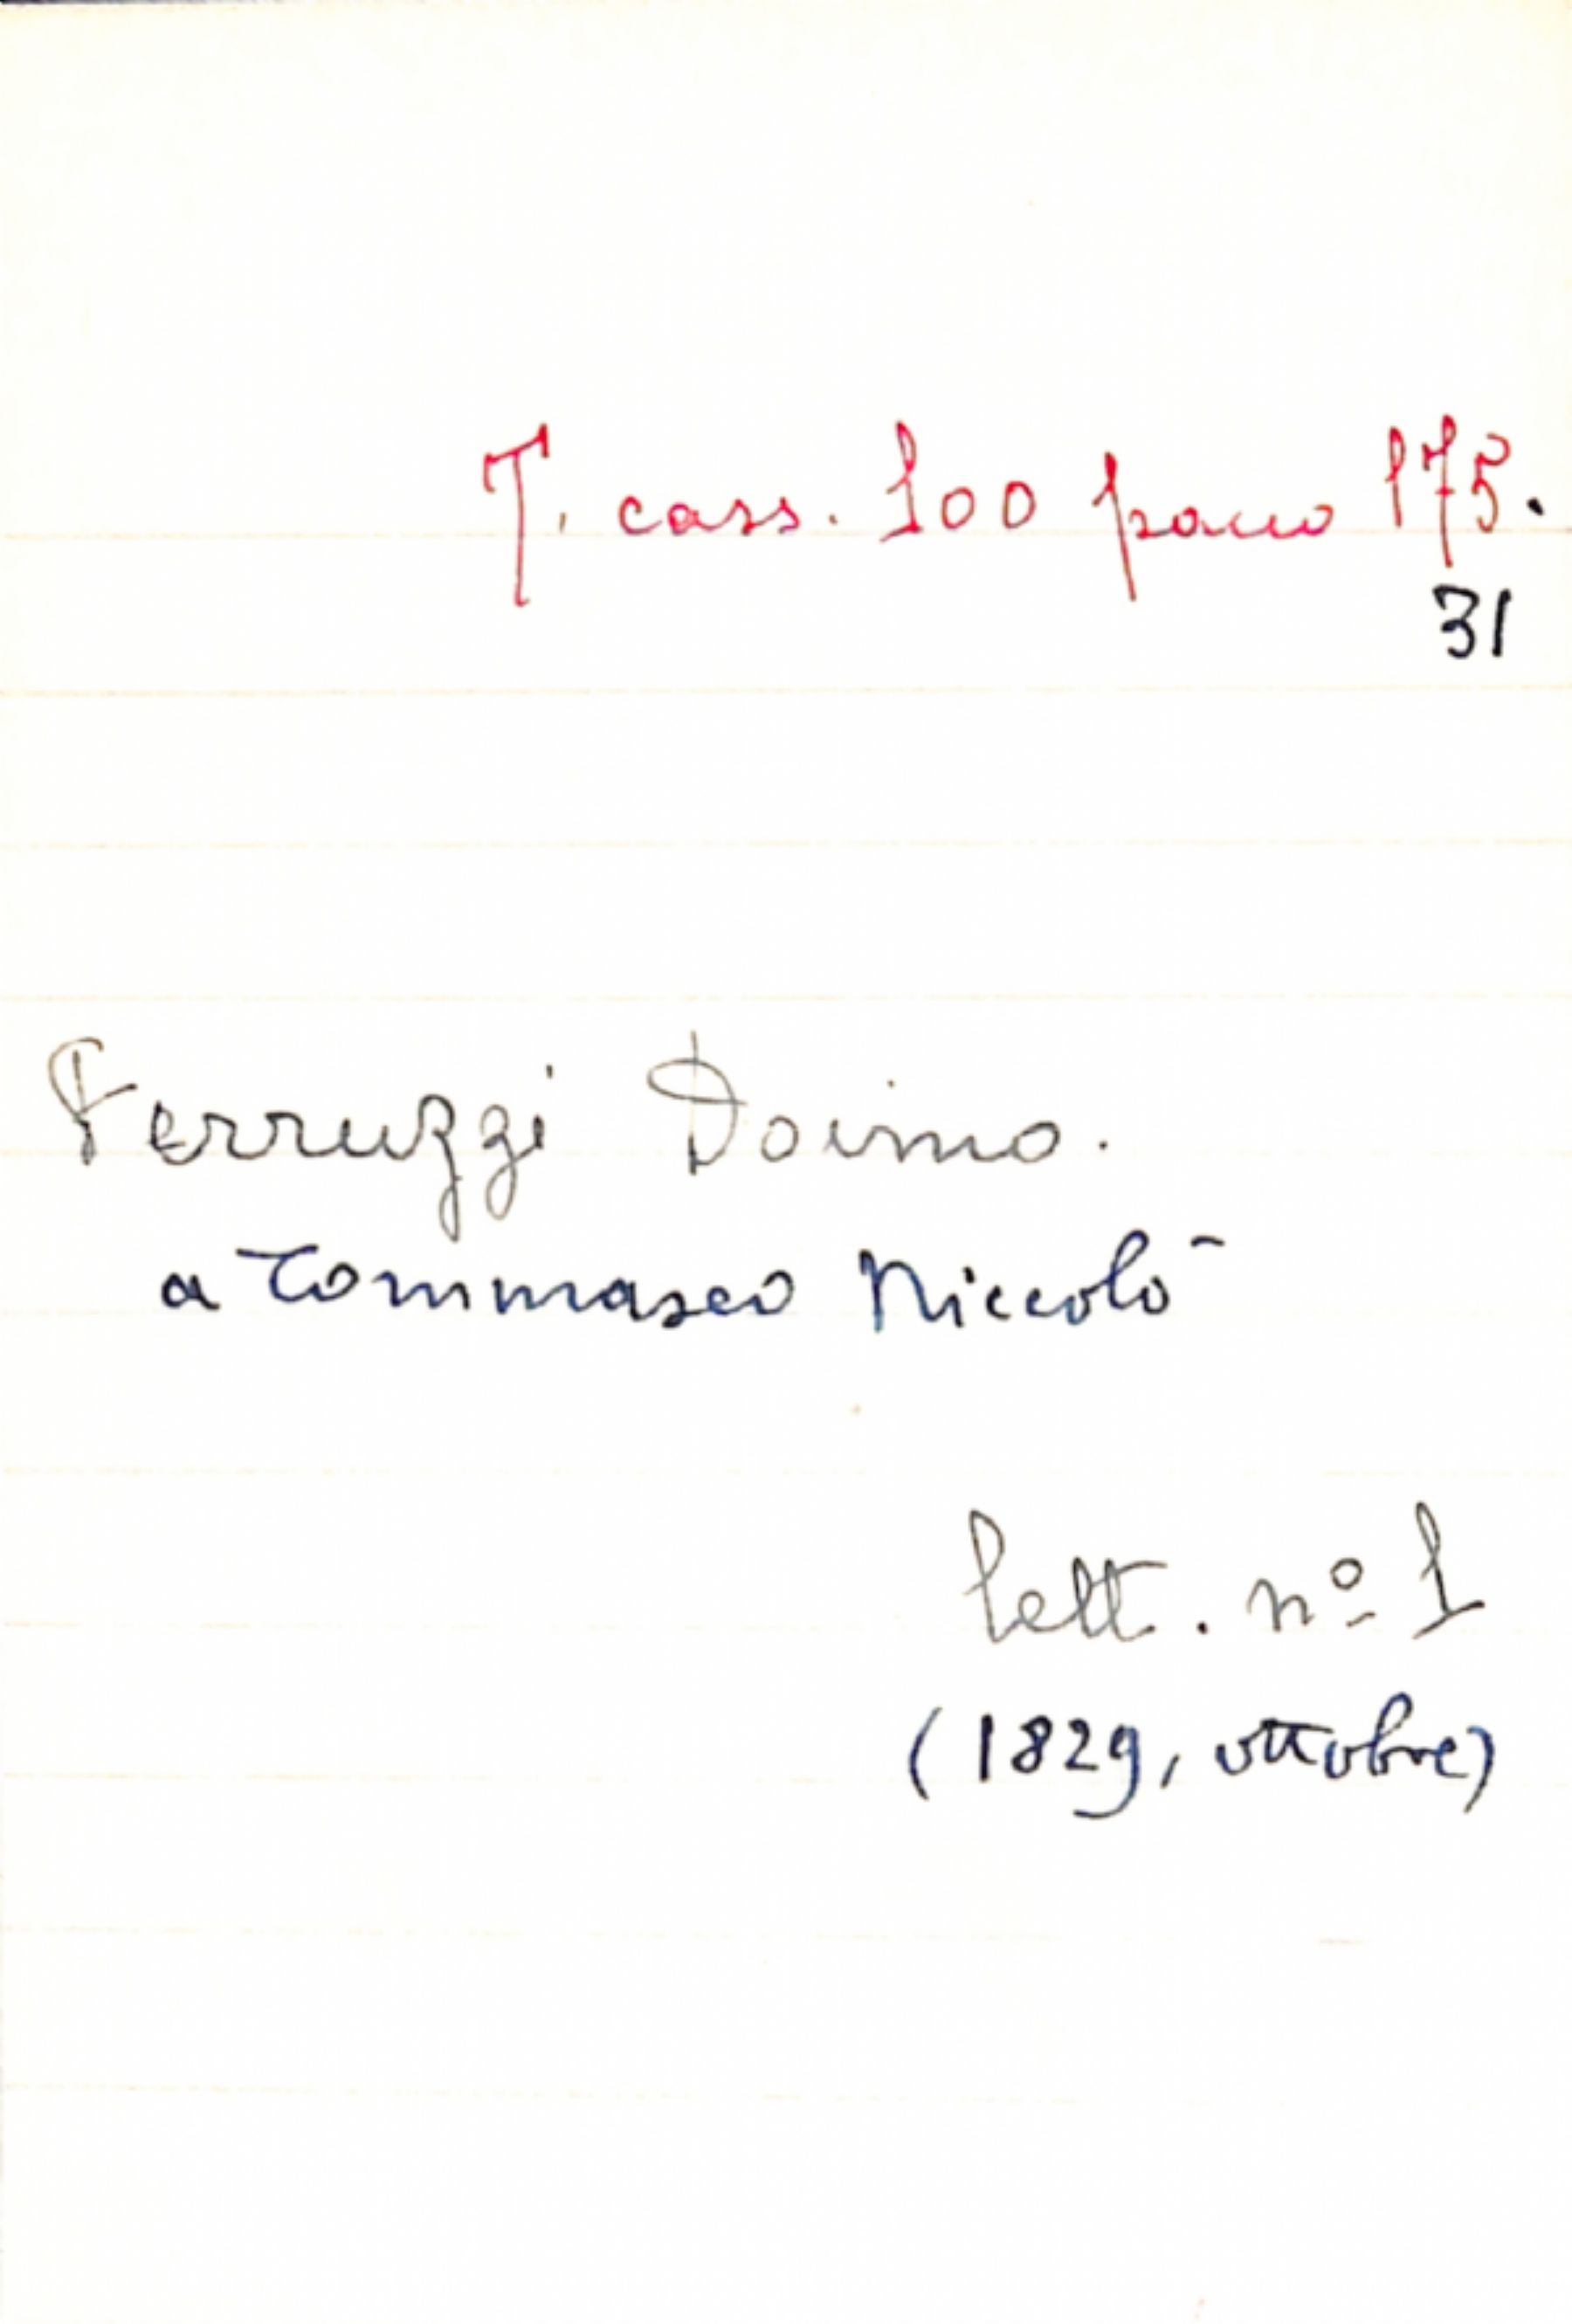 T. cass. 100 pacco 175.
31
Ferruzzi Doimo.
a Tommaseo Niccolò
lett. nº 1
(1829, ottobre)